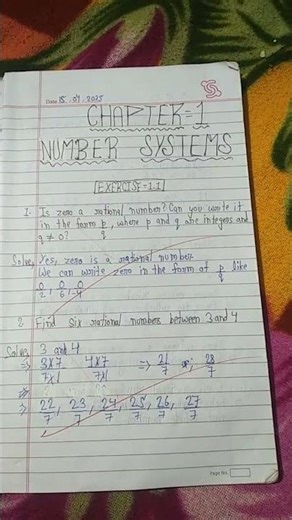 Date 15.04.2025
CHAPTER=1
NUMBER SYSTEMS
[EXERCISE-1.1]
1. Is zero a rational number? Can you write it
in the form p/q, where p and q are integers and
q ≠ 0?
Solve, Yes, zero is a rational number.
We can write zero in the form of p/q like
0/2, 0/6, 0/4
2. Find six rational numbers between 3 and 4
Solve, 3 and 4
⇒ 3x7/7x1 4x7/7x1 ⇒ 21/7 or, 28/7
⇒ 22/7, 23/7, 24/7, 25/7, 26/7, 27/7
Page No.